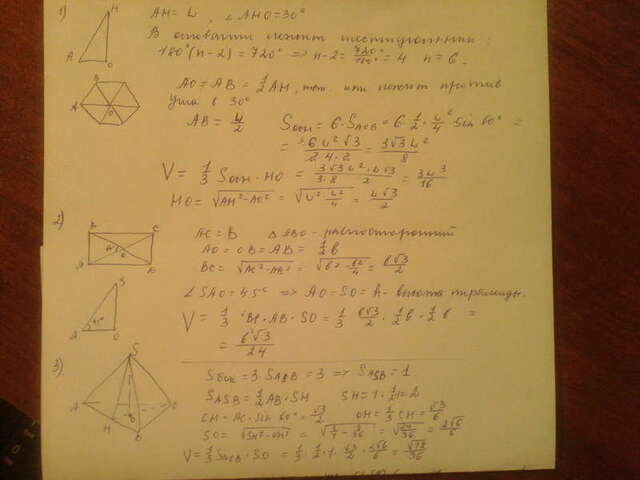 1)
H
A
O
AH = L, ∠AHO = 30°
В основании лежит шестиугольник:
180°(n-2) = 720° => n-2 = 720°/180° = 4 n = 6.
B
A
O
AO = AB = 1/2 AH, т.к. лежит против
угла в 30°
AB = L/2 Sосн = 6·SAOB = 6·1/2·L²/4 sin 60° =
= 6L²√3/2·4·2 = 3√3L²/8
V = 1/3 Sосн·HO = 3√3L²·L√3/3·8·2 = 3L³/16
HO = √(AH²-AO²) = √(L²-L²/4) = L√3/2
2)
B
C
A
D
O
AC = B ΔABO - равносторонний
AO = OB = AB = 1/2 b
BC = √(AC²-AB²) = √(b²-b²/4) = b√3/2
S
A
45°
O
∠SAO = 45° => AO = SO = h - высота пирамиды.
V = 1/3 BC·AB·SO = 1/3 · b√3/2 · 1/2 b · 1/2 b =
= b³√3/24
3)
S
A
C
O
H
B
Sбок = 3·SASB = 3 => SASB = 1
SASB = 1/2 AB·SH SH = 1·1/2 = 2
CH = AC·sin 60° = √3/2 OH = 1/3 CH = √3/6
SO = √(SH²-OH²)
V = 1/3 SACB·SO